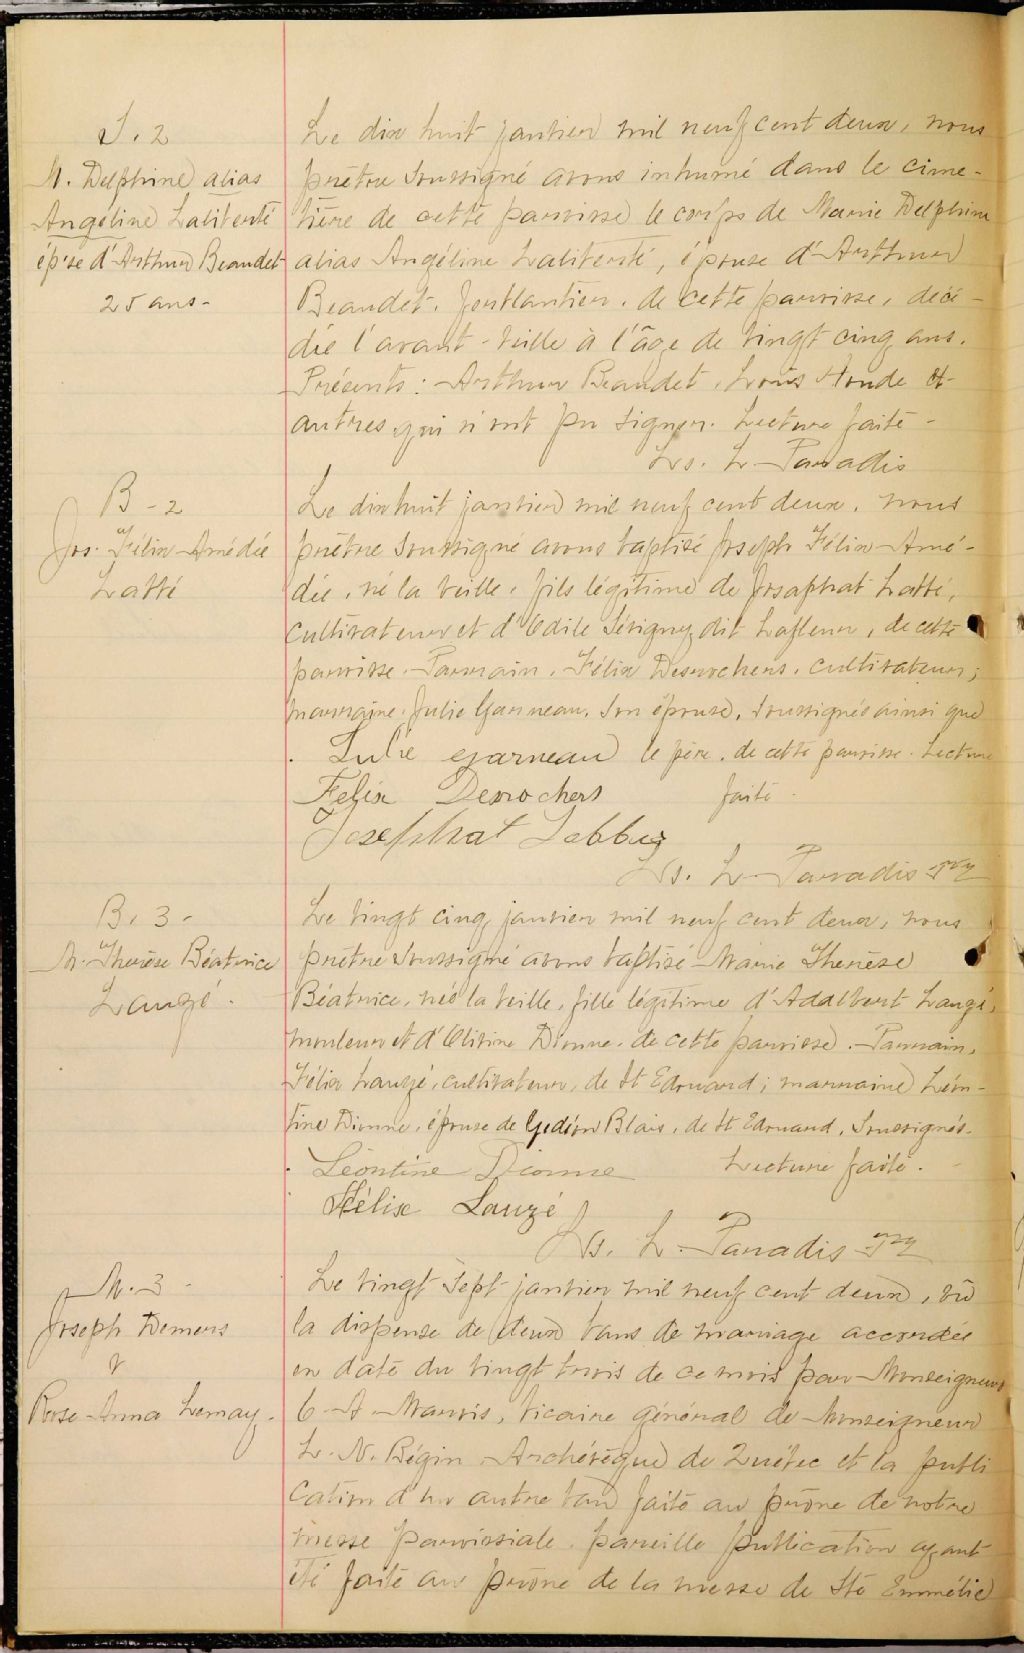 S. 2
M. Delphine alias
Angéline Laliberté
ép'se d'Arthur Beaudet
25 ans -
Le dix huit janvier mil neuf cent deux, nous
prêtre soussigné avons inhumé dans le cime-
tière de cette paroisse le corps de Marie Delphine
alias Angéline Laliberté, épouse d'Arthur
Beaudet, ferblantier, de cette paroisse, décé-
dée l'avant-veille à l'âge de vingt cinq ans.
Présents: Arthur Beaudet, Louis Houde et
autres qui n'ont pu signer. Lecture faite -
Ls. L. Paradis
B - 2
Jos. Félix-Amédée
Labbé
Le dix huit janvier mil neuf cent deux, nous
prêtre soussigné avons baptisé Joseph Félix-Amé-
dée, né la veille, fils légitime de Josaphat Labbé,
cultivateur et d'Odile Sévigny dit Lafleur, de cette
paroisse. Parrain, Félix Desrochers, cultivateur;
marraine, Julie Garneau, son épouse, soussignés ainsi que
le père, de cette paroisse. Lecture
faite.
Julie garneau
Felix Derochers
Josephat Labbee
Ls. L. Paradis Ptre
B. 3 -
M. Thérèse Béatrice
Lauzé.
Le vingt cinq janvier mil neuf cent deux, nous
prêtre soussigné avons baptisé Marie Thérèse
Béatrice, née la veille, fille légitime d'Adalbert Lauzé,
mouleur et d'Olivine Dionne, de cette paroisse. Parrain,
Félix Lauzé, cultivateur, de St Edouard; marraine Léon-
tine Dionne, épouse de Gédéon Blais, de St Edouard, soussignés.
Lecture faite.
Léontine Dionne
Félix Lauzé
Ls. L. Paradis Ptre
M. 3 -
Joseph Demers
&
Rose-Anna Lemay.
Le vingt sept janvier mil neuf cent deux, vû
la dispense de deux bans de mariage accordée
en date du vingt trois de ce mois par Monseigneur
C. A. Marois, vicaire général de Monseigneur
L. N. Bégin Archévêque de Québec et la publi
cation d'un autre ban faite au prône de notre
messe paroissiale, pareille publication ayant
été faite au prône de la messe de Ste Emmélie